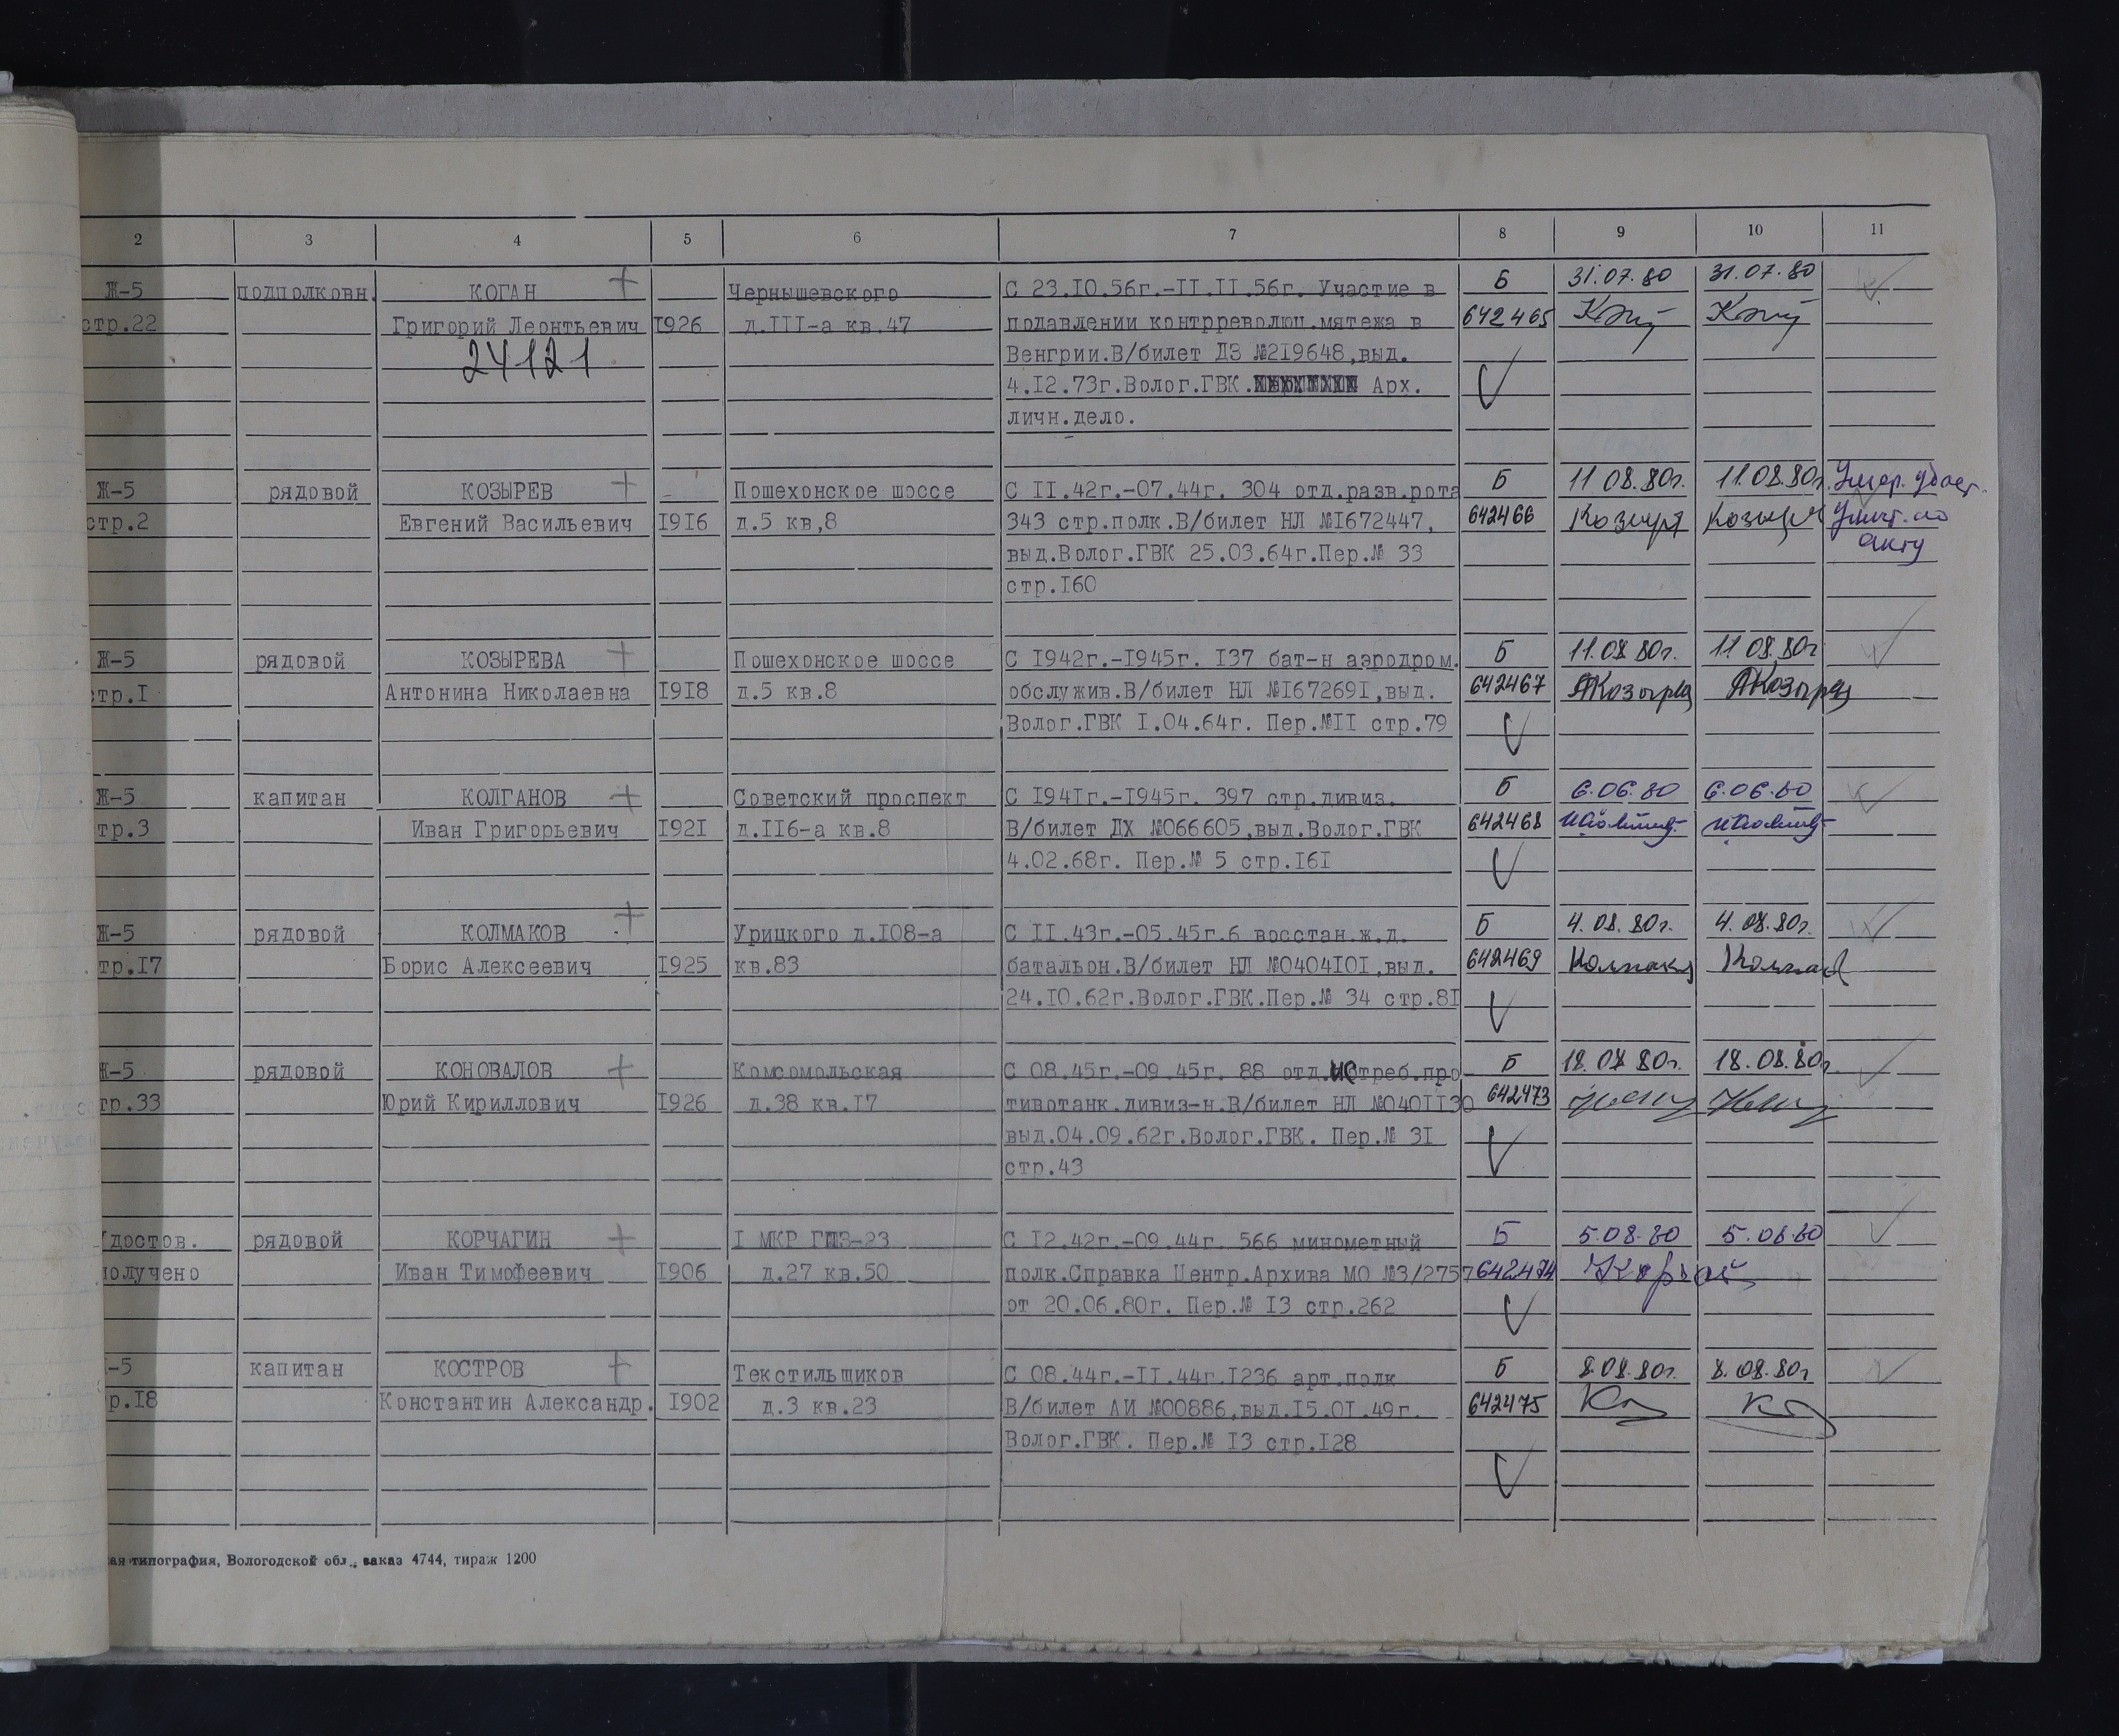 2 3 4 5 6 7 8 9 10 11
Ж-5 подполковн. КОГАН + Чернышевского С 23.I0.56г.-II.II.56г. Участие в Б 31.07.80 31.07.80
стр.22 Григорий Леонтьевич I926 д.III-а кв.47 подавлении контрреволюц.мятежа в 642465
24121 Венгрии.В/билет ДЗ №2I9648,выд.
4.I2.73г.Волог.ГВК. Арх.
личн.дело.
Ж-5 рядовой КОЗЫРЕВ + Пошехонское шоссе С II.42г.-07.44г. 304 отд.разв.рота Б 11 08.80г. 11.08.80г. Умер. удост.
стр.2 Евгений Васильевич I9I6 д.5 кв,8 343 стр.полк.В/билет НЛ №I672447, 642466 Козыря Уничт. по
выд.Волог.ГВК 25.03.64г.Пер.№ 33 акту
стр.I60
Ж-5 рядовой КОЗЫРЕВА + Пошехонское шоссе С I942г.-I945г. I37 бат-н аэродром. Б 11.08 80г. 11 08.80г
стр.I Антонина Николаевна I9I8 д.5 кв.8 обслужив.В/билет НЛ №I67269I,выд. 642467
Волог.ГВК I.04.64г. Пер.№II стр.79
Ж-5 капитан КОЛГАНОВ + Советский проспект С I94Iг.-I945г. 397 стр.дивиз. Б 6.06.80 6.06.80
тр.3 Иван Григорьевич I92I д.II6-а кв.8 В/билет ДХ №066605,выд.Волог.ГВК 642468
4.02.68г. Пер.№ 5 стр.I6I
Ж-5 рядовой КОЛМАКОВ + Урицкого д.I08-а С II.43г.-05.45г.6 восстан.ж.д. Б 4.08.80г. 4.08.80г.
тр.I7 Борис Алексеевич I925 кв.83 батальон.В/билет НЛ №0404I0I,выд. 642469
24.I0.62г.Волог.ГВК.Пер.№ 34 стр.8I
Ж-5 рядовой КОНОВАЛОВ + Комсомольская С 08.45г.-09.45г. 88 отд.истреб.про Б 18.08 80г. 18.08.80г
тр.33 Юрий Кириллович I926 д.38 кв.I7 тивотанк.дивиз-н.В/билет НЛ №040II30 642473
выд.04.09.62г.Волог.ГВК. Пер.№ 3I
стр.43
достов. рядовой КОРЧАГИН + I МКР ГПЗ-23 С I2.42г.-09.44г. 566 минометный Б 5.08.80 5.08.80
получено Иван Тимофеевич I906 д.27 кв.50 полк.Справка Центр.Архива МО №3/2757 642474
от 20.06.80г. Пер.№ I3 стр.262
-5 капитан КОСТРОВ + Текстильщиков С 08.44г.-II.44г.I236 арт.полк Б 8.08.80г. 8.08.80г
р.I8 Константин Александр. I902 д.3 кв.23 В/билет АИ №00886,выд.I5.0I.49г. 642475
Волог.ГВК. Пер.№ I3 стр.I28
ая типография, Вологодской обл., заказ 4744, тираж 1200